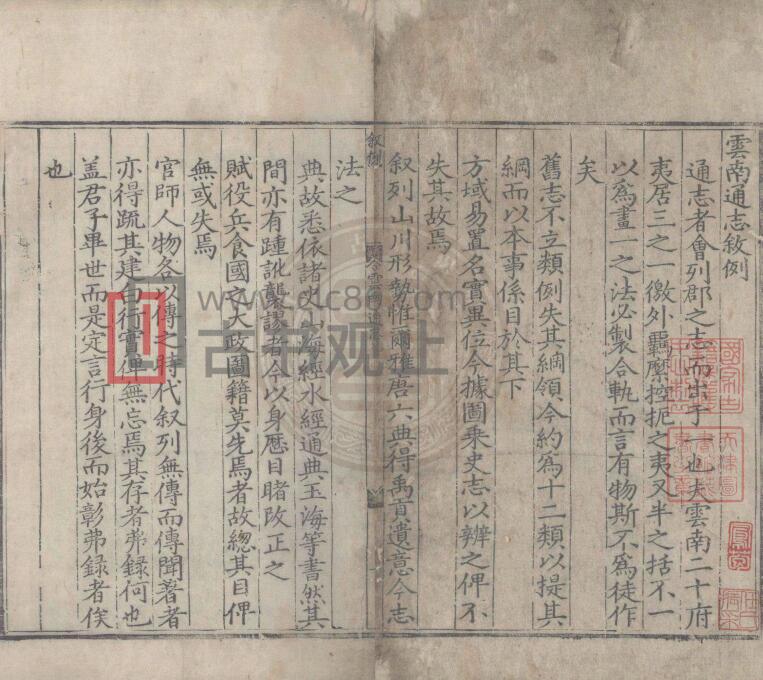 雲南通志敘例
通志者會列郡之志而出于一也夫雲南二十府
夷居三之一徼外羈縻控扼之夷又半之括不一
以爲畫一之法必製合軌而言有物斯不爲徒作
矣
舊志不立類例失其綱領今約爲十二類以提其
綱而以本事係目於其下
方域易置名實異位今據圖乘史志以辨之俾不
失其故焉
敘列山川形勢惟爾雅唐六典得禹貢遺意今志
敘例
法之
典故悉依諸史山海經水經通典玉海等書然其
間亦有踵訛襲謬者今以身歷目睹改正之
賦役兵食國之大政圖籍莫先焉者故總其目俾
無或失焉
官師人物各以傳之時代叙列無傳而傳聞著者
亦得疏其建白行實俾無忘焉其存者弗録何也
盖君子畢世而是定言行身後而始彰弗録者俟
也
www.dc80.com
古书观止